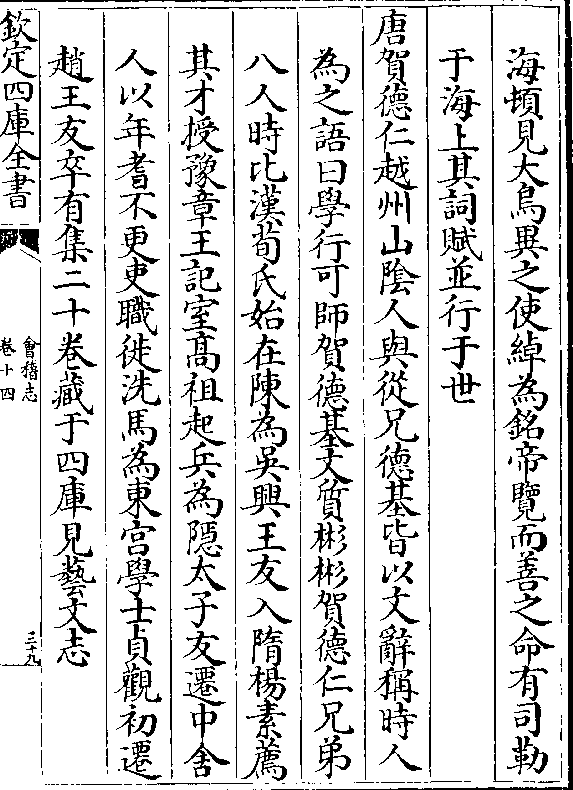 海頓見大鳥異之使綽為銘帝覽而善之命有司勒
于海上其詞賦並行于世
唐賀德仁越州山陰人與從兄德基皆以文辭稱時人
為之語曰學行可師賀德基文質彬彬賀德仁兄弟
八人時比漢荀氏始在陳為吳興王友入隋楊素薦
其才授豫章王記室髙祖起兵為隱太子友遷中舍
人以年耆不更吏職徙洗馬為東宫學士貞觀初遷
趙王友卒有集二十卷藏于四庫見藝文志
欽定四庫全書
會稽志
卷十四
三十九